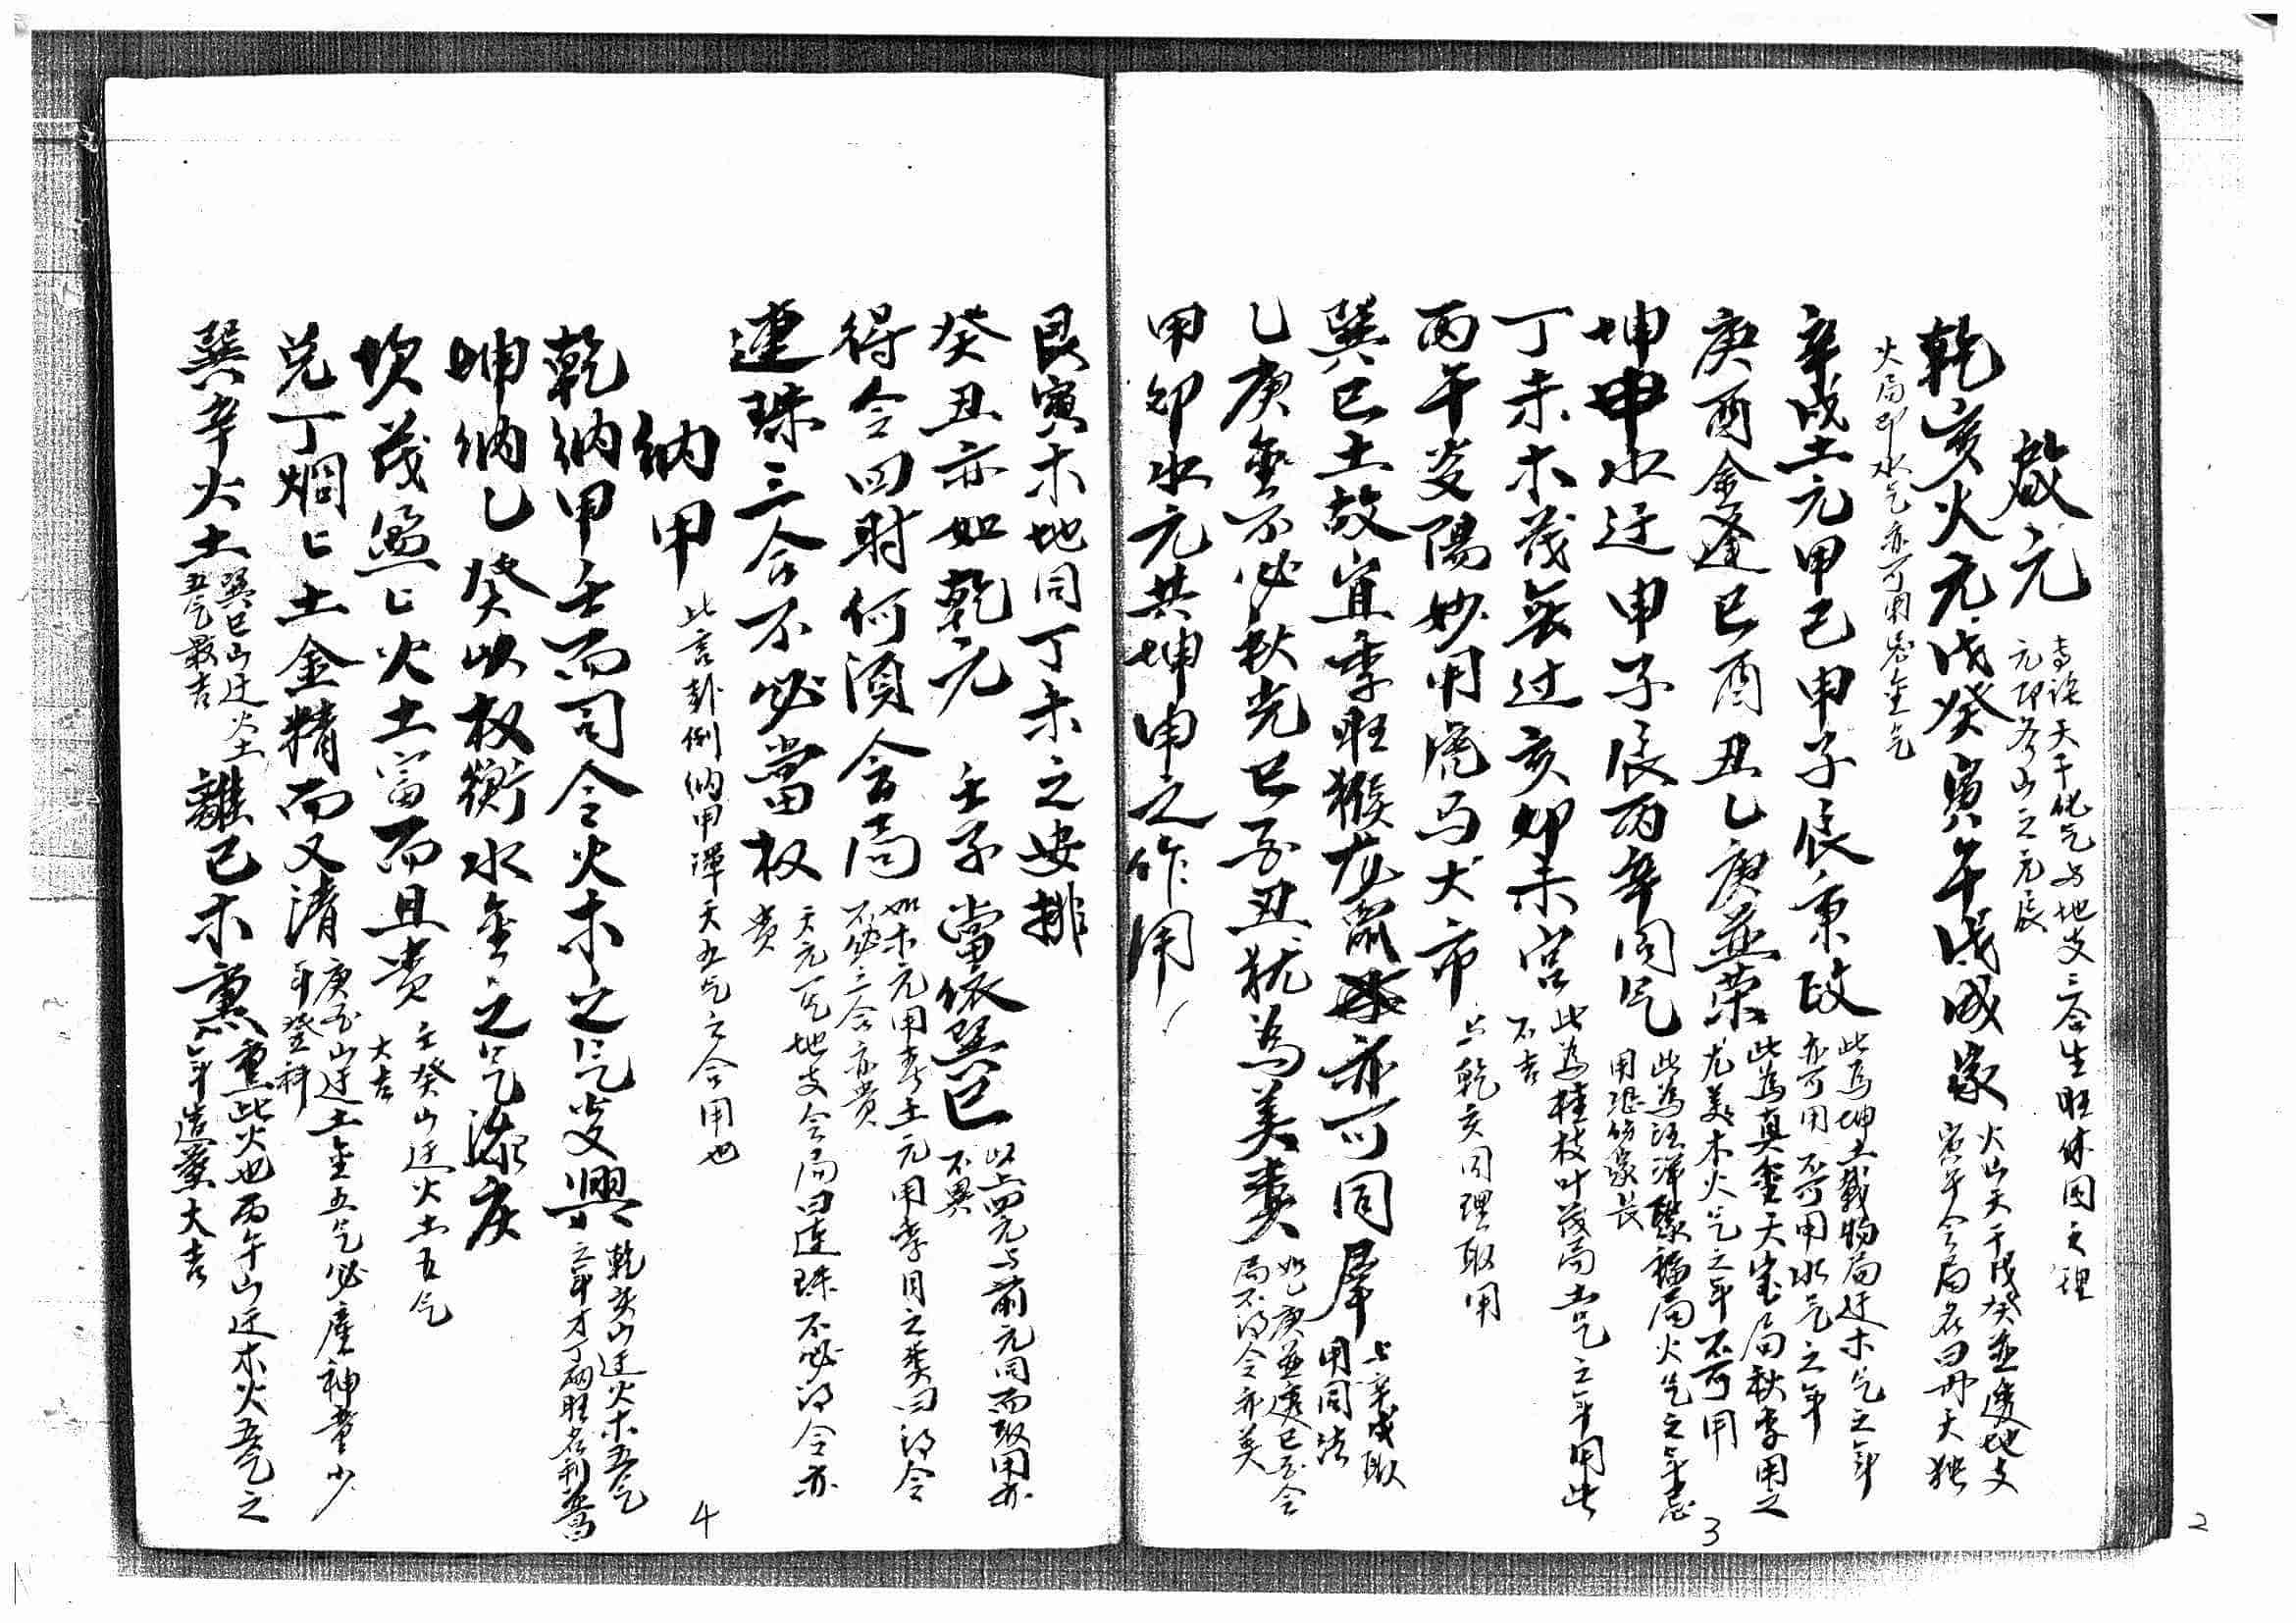 啟元
専論天干化气与地支三合生旺休囚之理
元即各山之元辰
乾亥火元戊癸寅午戌成家
火山天干戊癸並透地支
寅午会局名曰丹天独
火局即水气亦可用忌金气
辛戌土元甲己申子辰秉政
此为坤土載物局迁木气之年
亦可用不可用水气之年
庚酉金逢巳酉丑乙庚並荣
此為真金天宝局秋季用之
尤美木火气之年不可用
坤申水迂申子辰丙辛同气
此為汪洋聚福局火气之年忌
用恐伤家長
丁未木茂衰过亥卯未宫
此為桂枝叶茂局土气之年用此
不吉
丙午炎陽妙用虎马犬市
与乾亥同理取用
巽巳土故宜季旺猴龙鼠亦可同羣
与辛戌取
用同法
乙庚金不必秋光巳酉丑犹為美貴
如乙庚並透巳酉会
局不得令亦美
甲卯水元共坤申之作用
艮寅木地同丁未之安排
癸丑亦如乾元 壬子當依巽巳
以上四元与前元同而取用亦
不異
得令四財何須会局
如木元用春土元用季月之类曰得令
不必三合亦貴
連珠三合不必當权
天元一气地支会局曰連珠不必得令亦
貴
納甲
此言卦例納甲渾天五气之合用也
乾納甲壬而司令火木之气发興
乾亥山迂火木五气
之年才丁两旺名利
坤納乙癸以权衡水金之气添庆
坎茂盈匕火土富而且贵
壬癸山迂火土五气
大吉
兑丁烟匕土金精而又清
庚酉山迂土金五气必産神童少
年登科
巽辛火土
巽巳山迂火土
五气最吉
離己木熏重
此火也丙午山迂木火五气之
年造葬大吉
4
3
2